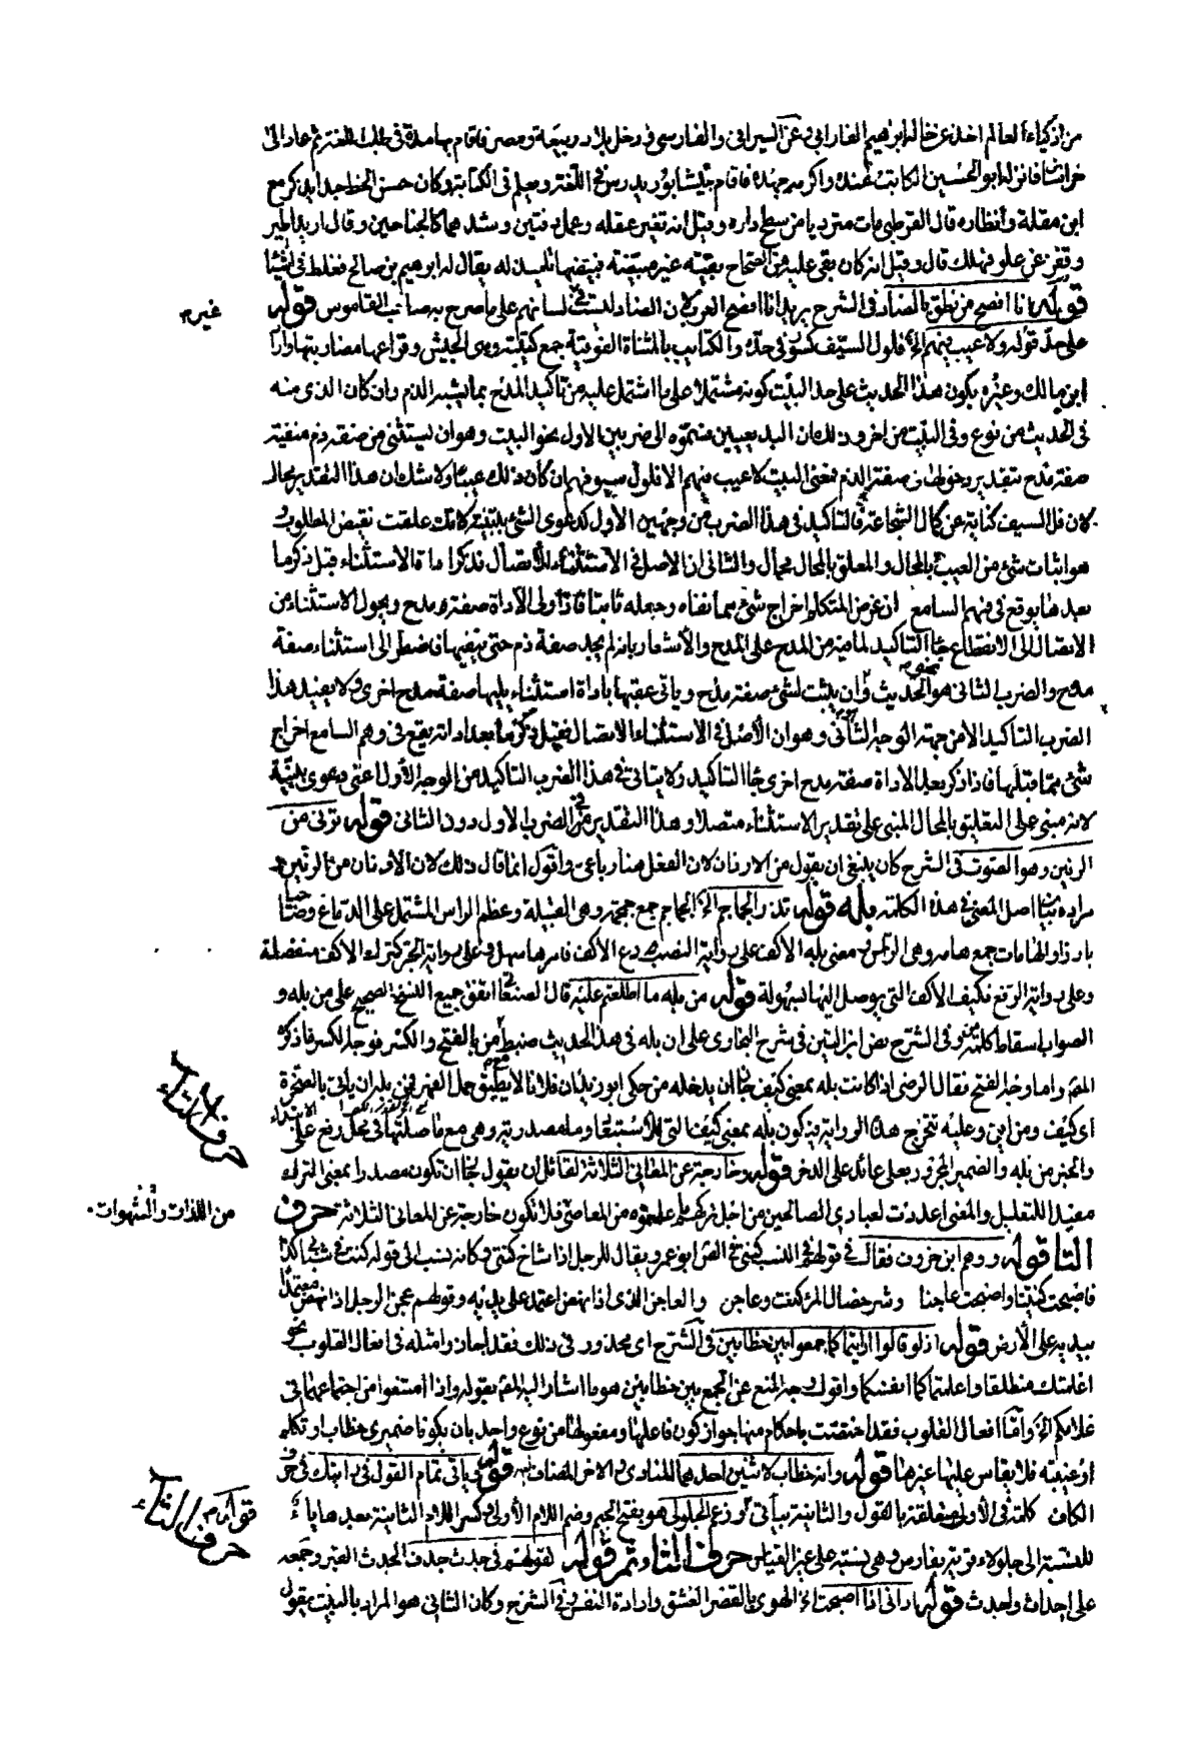 من اذكياء العالم اخذ عن خاله ابراهيم الفارابي وعن السيرافي والفارسي ودخل بلاد ربيعة ومصر فاقام بها مدة في طلب اللغة ثم عاد الى
خراسان فانزله ابو الحسين الكاتب عنده واكرمه جهده فاقام بنيسابور يدرس في اللغة ويعلم في الكتابة وكان حسن الخط جدا يذكر مع
ابن مقلة وانظاره قال القرطبي مات مترديا من سطح داره وقيل انه تغير عقله وعمل دفتين وشدهما كالجناحين وقال اريد اطير
وقفز عن علو فهلك قال وقيل انه كان بقي عليه من الصحاح بقية غير مبيضة فبيضها تلميذ له يقال له ابراهيم بن صالح فغلط في اشيا
قوله انا افصح من نطق بالضاد في الشرح يريد انا افصح العرب لان الضاد ليست في لسان غيرهم على ما صرح به صاحب القاموس قوله
على حد قوله ولا عيب فيهم الخ فلول السيف كسور في حده والكتايب بالمثناة الفوقية جمع كتيبة وهي الجيش وقراعها مضاربتها واراد
ابن مالك وغيره بكون هذا الحديث على حد البيت كونه مشتملا على ما اشتمل عليه من تاكيد المدح بما يشبه الذم وان كان الذي منه
في الحديث من نوع وفي البيت من اخر وذلك ان البديعيين قسموه الى ضربين الاول نحو البيت وهو ان يستثنى من صفة ذم منفية
صفة مدح بتقدير دخولها في صفة الذم فمعنى البيت لا عيب فيهم الا فلول سيوفهم ان كان ذلك عيبا ولا شك ان هذا التقدير محال
لان فل السيف كناية عن كمال الشجاعة فالتاكيد في هذا الضرب من وجهين الاول كدعوى الشئ ببينة كانك علقت نقيض المطلوب و
هو اثبات شئ من العيب بالمحال والمعلق بالمحال محال والثاني ان الاصل في الاستثناء الاتصال فذكر اداة الاستثناء قبل ذكر ما
بعدها يوقع في فهم السامع ان غرض المتكلم اخراج شئ مما نفاه وجعله ثابتا فاذا ولى الاداة صفة مدح وتحول الاستثناء من
الاتصال الى الانقطاع جاء التاكيد لما فيه من المدح على المدح والاشعار بانه لم يجد صفة ذم حتى ينفيها فاضطر الى استثناء صفة
مدح والضرب الثاني هو نحو الحديث وان يثبت لشئ صفة مدح وياتي عقبها باداة استثناء يليها صفة مدح اخرى ولا يفيد هذا
الضرب التاكيد الا من جهة الوجه الثاني وهو ان الاصل في الاستثناء الاتصال فقبل ذكر ما بعد اداته يقع في وهم السامع اخراج
شئ مما قبلها فاذا ذكر بعد الاداة صفة مدح اخرى جاء التاكيد ولا يتاتى في هذا الضرب التاكيد من الوجه الاول اعني دعوى ببينة
لانه مبني على التعليق بالمحال المبني على تقدير الاستثناء متصلا وهذا التقدير في الضرب الاول دون الثاني قوله ترنى من
الرنين وهو الصوت في الشرح كان ينبغي ان يقول من الارنان لان الفعل هنا رباعي واقول انما قال ذلك لان الارنان من الرنين
مراده بيان اصل المعنى في هذه الكلمة بله قوله تذر الجماجم الخ الجماجم جمع جمجمة وهي القبيلة وعظم الراس المشتمل على الدماغ وضاحيا
بارزا والهامات جمع هامة وهي الراس ومعنى بله الاكف على رواية النصب دع الاكف فامرها سهل وعلى رواية الجر كترك الاكف منفصلة
وعلى رواية الرفع فكيف الاكف التي يوصل اليها بسهولة قوله من بله ما اطلعتم عليه قال الصنعاني اتفق جميع النسخ الصحيح على من بله و
الصواب اسقاط كلمة من وفي الشرح نص ابن التين في شرح البخاري على ان بله في هذا الحديث ضبط من بالفتح والكسر فوجه الكسر فاذكره
المص واما وجه الفتح فقال الرضي اذا كانت بله بمعنى كيف جاز ان يدخله من حكى ابو زيد ان فلانا لا يطيق حمل الفهر فمن بله ان ياتي بالصخرة
اي كيف ومن اين وعليه تتخرج هذه الرواية فتكون بله بمعنى كيف التي للاستبعاد وما مصدرية وهي مع صلتها في محل رفع على الابتداء
والخبر من بله والضمير المجرور بعلى عائد على الذخر قوله وخارجة عن المعاني الثلاثة لقائل ان يقول يجوز ان تكون مصدرا بمعنى الترك
مفيدا للتعليل والمعنى اعددت لعبادي الصالحين من اجل تركهم ما علمتموه من المعاصي فلا تكون خارجة عن المعاني الثلاثة حرف
التا قوله ووهم ابن خروف فقال في قولهم في النسب كنتي في ابو عمرو يقال للرجل اذا شاخ كنتي وكانه نسب الى قوله كنت في شبابي كذا
فاصبحت كنتيا واصبحت عاجنا وشر خصال المرء كنت وعاجن والعاجن الذي اذا نهض اعتمد على يديه وقولهم عجن الرجل اذا نهض معتمدا
بيديه على الارض قوله اذ لو قالوا ارايتما كما جمعوا بين خطابين في الشرح اي محذور في ذلك فقد اجازوا مثله في افعال القلوب نحو
اعلمتك منطلقا واعلمتماكما انفسكما واقول وجه المنع عن الجمع بين خطابين هو ما اشار اليه المص بقوله واذا امتنعوا من اجتماعهما في
غلامكم الخ واما افعال القلوب فقد اختصت باحكام منها جواز كون فاعلها ومفعولها من نوع واحد بان يكونا ضميري خطاب او تكلم
او غيبة فلا يقاس عليها غيرها قوله وانه خطاب لاثنين احدهما المنادي والاخر المضاف اليه قوله وياتي تمام القول في ارايتك في حرف
الكاف كلمة في الاولى متعلقة بالقول والثانية بياتي قوله وزعم الجلولي هو بفتح الجيم وضم اللام الاولى وكسر اللام الثانية بعدها ياء
للنسبة الى جلولاء قرية بفارس وهي نسبة على غير القياس حرف الثاء ثم قوله لقولهم في جدث جدف الجدث القبر وجمعه
على اجداث واجدث قوله اراني اذا اصبحت الخ الهوى بالقصر العشق وارادة النفس في الشرح وكان الثاني هو المراد بالبيت يقول
غيرهم
حرف التاء
من اللذات والشهوات
قوله
حرف الثاء